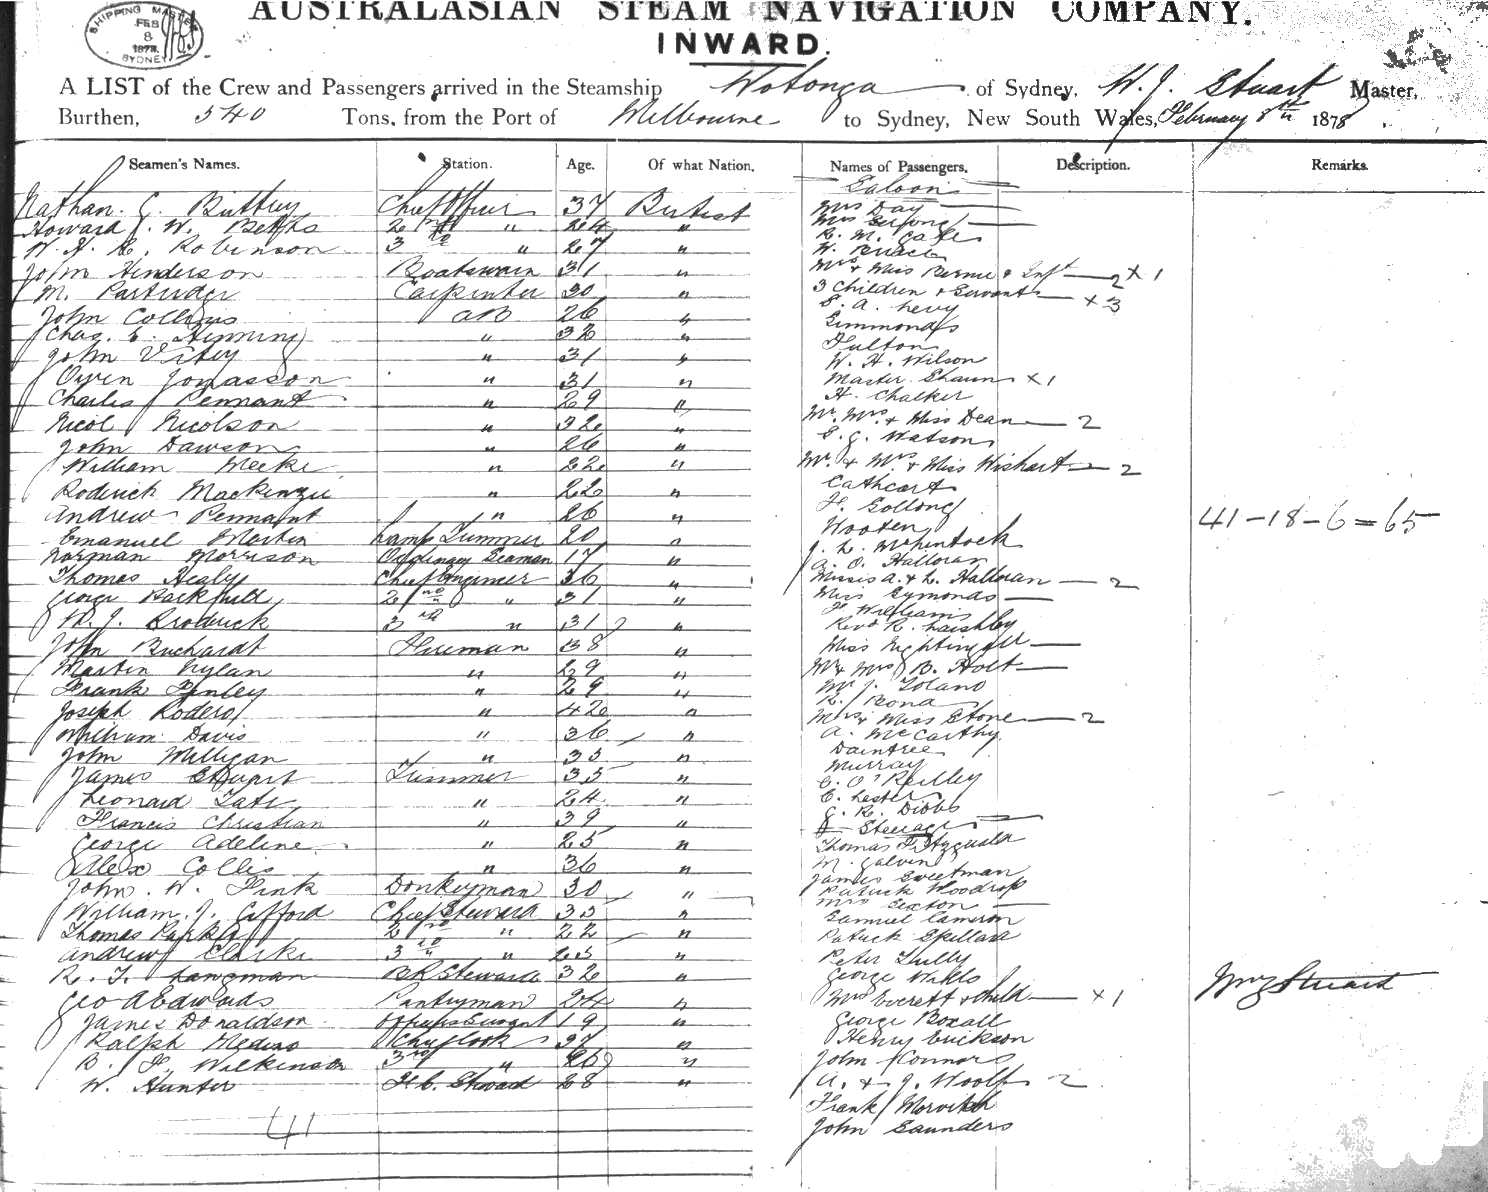 SHIPPING MASTER
FEB
8
1878
SYDNEY
AUSTRALASIAN STEAM NAVIGATION COMPANY.
INWARD.
A LIST of the Crew and Passengers arrived in the Steamship Wotonga of Sydney, W. J. Stuart Master,
Burthen, 540 Tons, from the Port of Melbourne to Sydney, New South Wales, February 8th 1878
Seamen's Names. Station. Age. Of what Nation. Names of Passengers. Description. Remarks.
Saloon
Nathan G. Buttrey Chief Officer 37 British
Howard J. W. Betths 2nd " 24 "
W. H. E. Robinson 3rd " 27 "
John Henderson Boatswain 31 "
M. Partridge Carpenter 30 "
John Collins AB 26 "
Chas. E. Henning " 32 "
John Vitey " 31 "
Owen Jonasson " 31 "
Charles Pennant " 29 "
Nicol Nicolson " 32 "
John Dawson " 26 "
William Meeke " 22 "
Roderick Mackenzie " 22 "
Andrew Pennant " 26 "
Emanuel Martin Lamp Trimmer 20 "
Norman Morrison Ordinary Seaman 17 "
Thomas Healy Chief Engineer 36 "
George Backfield 2nd " 31 "
W. J. Brodrick 3rd " 31 "
John Buchardt Fireman 38 "
Martin Nylan " 29 "
Frank Finley " 29 "
Joseph Rodero " 42 "
William Davis " 36 "
John Milligan " 35 "
James Stuart Trimmer 35 "
Leonard Tate " 24 "
Francis Christian " 39 "
George Adeline " 25 "
Alex Collis " 36 "
John. W. Fink Donkeyman 30 "
William. J. Gifford Chief Steward 35 "
Thomas Parker 2nd " 22 "
Andrew Clarke 3rd " 23 "
R. T. Langman BR Steward 32 "
Geo A Edwards Pantryman 24 "
James Donaldson Officers Servant 19 "
Ralph Medino Chief Cook 37 "
B. F. Wilkinson 3rd " 26 "
W. Hunter F.C. Steward 28 "
41
Mrs Day
R. M. Cape
Mrs & Miss Burne & Inft 2 x 1
3 Children & Servants x 3
E. A. Levy
Simmonds
Fulton
W. H. Wilson
Master Shaun x 1
H. Chalker
Mr. Mrs. & Miss Dean 2
E. G. Watson
Mr. & Mrs & Miss Wishart 2
Cathcart
F. Gollong
Wooten
J. L. McKintock
A. O. Halloran
Misses A. & L. Halloran 2
Miss Symonds
F Williams
Revd R. Laishley
Miss Nightingale
Mr & Mrs B. Holt
Mr J. Tolano
R. Bona
Mrs & Miss Stone 2
A. McCarthy
Daintree
Murray
C. O'Reilly
C. Lester
G. R. Dibbs
Steerage
Thomas Fitzgerald
M. Galvin
James Sweetman
Patrick Woodrop
Mrs Sexton
Samuel Cameron
Patrick Skillard
Peter Tully
George Wakes
Mrs Everett & Child x 1
George Boxall
Henry Erickson
John Connors
A. & J. Woolf 2
Frank Morvitch
John Saunders
41-18-6=65
Wm J Stuart